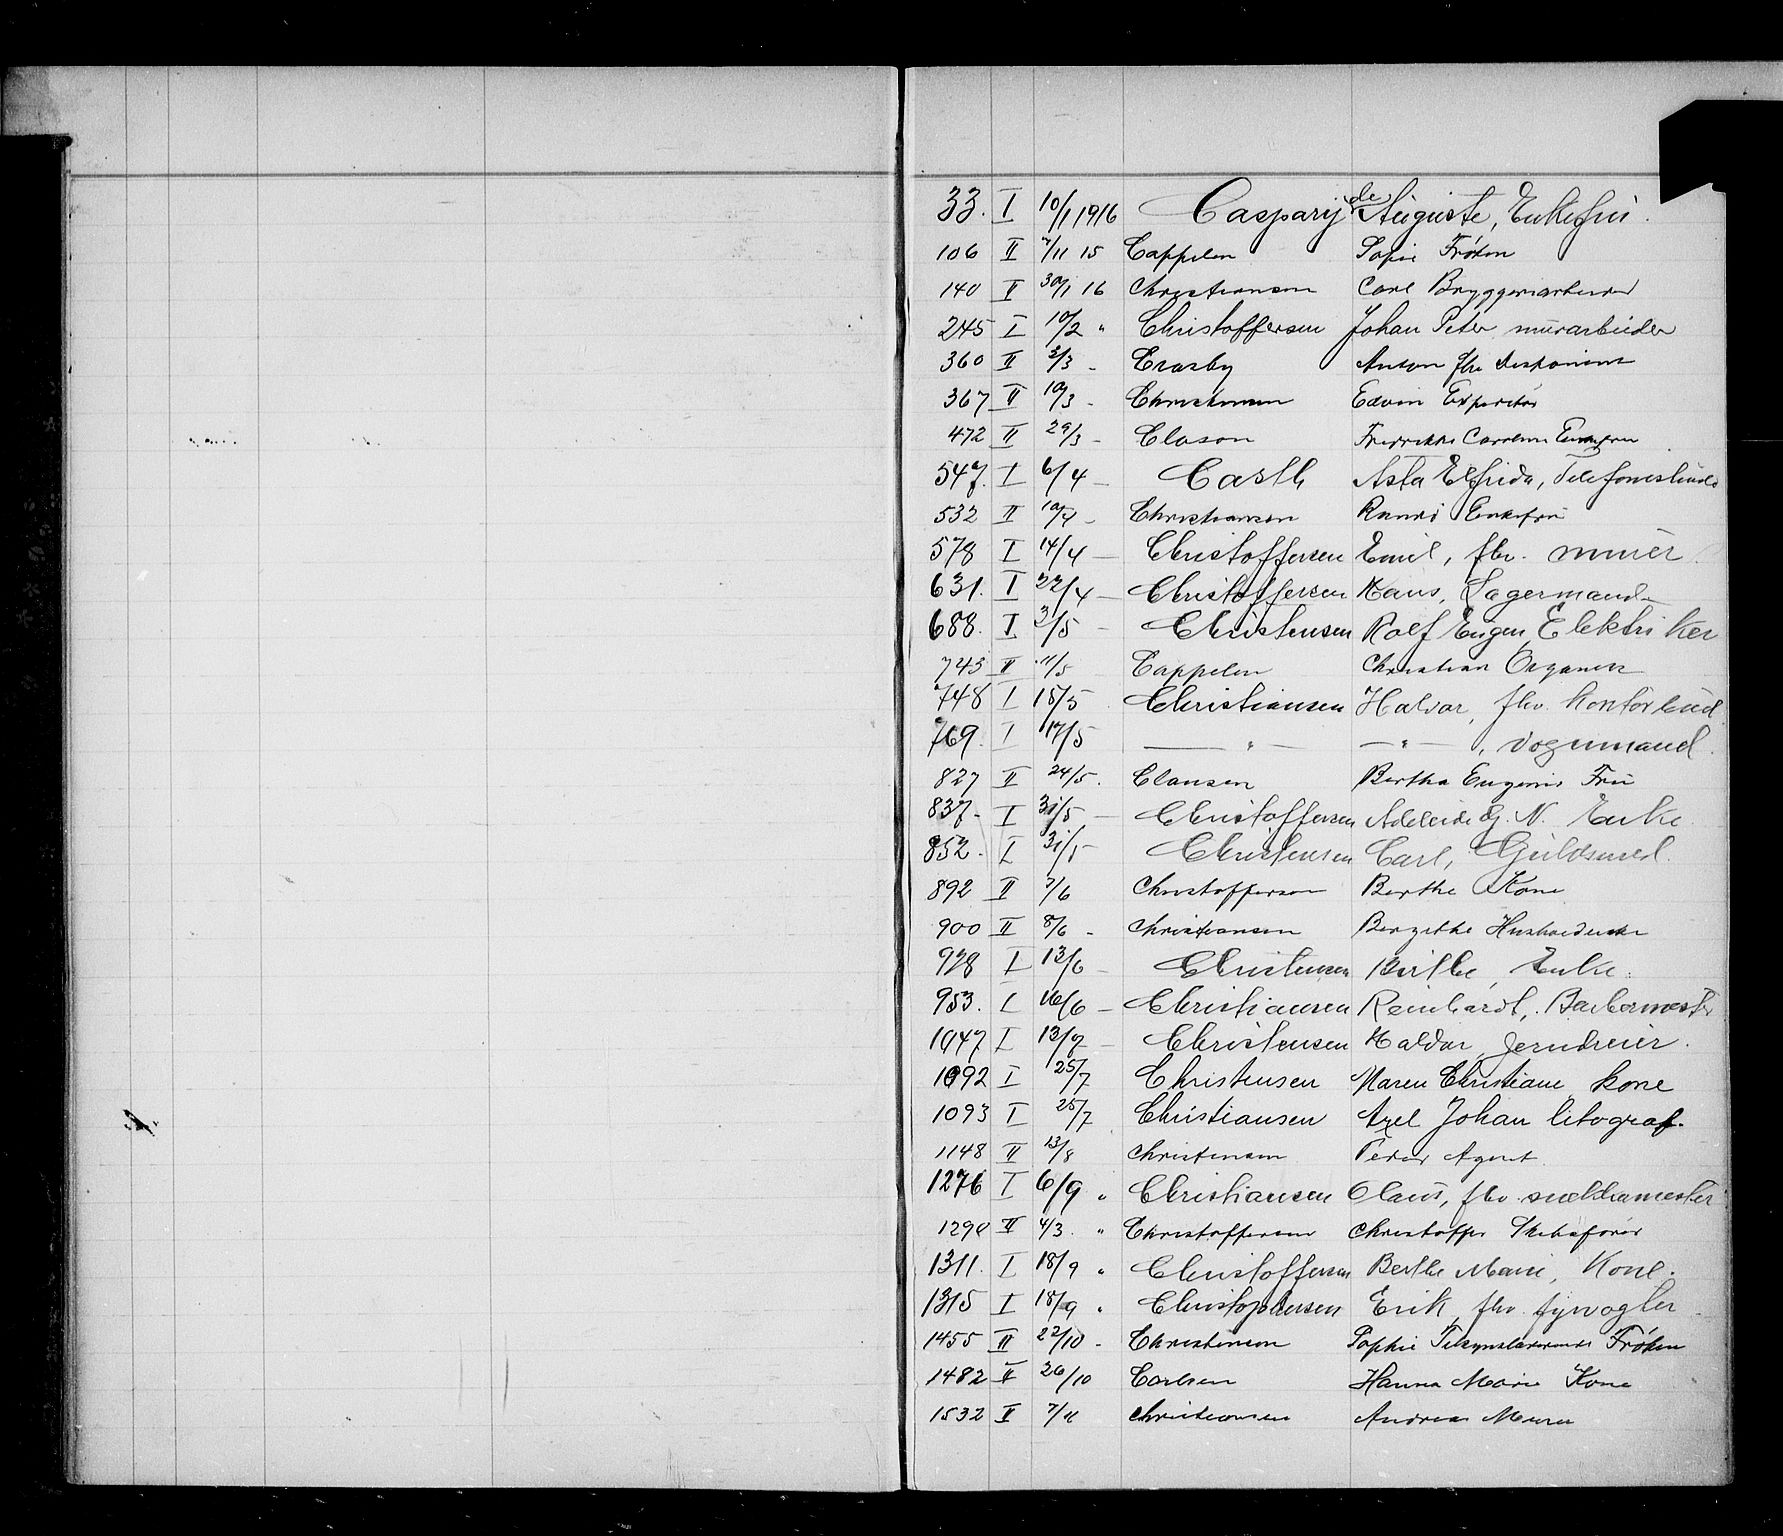 33. I 10/1 1916 Caspary de Auguste, Enkefrü.
106 II 7/11 15 Cappelen Sofie Frøken
140 II 30/1 16 Christiansen Carl Bryggeriarbeider
245 I 10/2 " Christoffersen Johan Peter murarbeider
360 II 3/3 - Crasby Anton fhv Disponent
367 II 10/3 - Christensen Edvin Expeditør
472 II 29/3 - Clason Fredrikke Enkefru
547. I 6/4 - Castb Asta Elfrida, Telefonistinde
532 II 10/4 - Christiansen Randi Enkefru
578 I 14/4 - Christoffersen Emil, fhv. murer
631. I 22/4 - Christoffersen Hans, Lagermand
688. I 3/5 - Christensen Rolf Eugen, Elektriker
743 II 11/5 Cappelen Christian Organist
748 I 15/5 Christiansen Halvor, fhv. Kontorbud
769. I 17/5 — " — — " — , vognmand.
827 II 24/5. Clausen Bertha Eugenie Frü
837. I 31/5 - Christoffersen Adeleide G. N. Enke
852. I 31/5 Christensen Carl, Güldsmed.
892 II 7/6 Christoffersen Berthe Kone
900 II 8/6 - Christiansen Bergithe Husholderske
928 I 13/6 - Christensen Berthe, Enke.
953. I 16/6 - Christiansen Reinhardt, Barbermester
1047 I 13/7 - Christensen Haldor, Jerndreier.
1092 I 25/7 Christensen Maren Christiane kone
1093 I 25/7 Christiansen Axel Johan litograf.
1148 II 23/8 Christensen Peder Agent
1276 I 6/9 " Christiansen Olaus, fhv.
1290 II 4/3. " Christoffersen Christoffer Skibsfører
1311. I 18/9 " Christoffersen Berthe Marie, Kone.
1315 I 18/9 " Christophersen Erik, fhv. fyrvogter
1455 II 22/10 - Christensen Sophie Frøken
1482 II 26/10 Carlsen Hanna Marie Kone
1532 II 7/11 Christiansen Andreas Murer